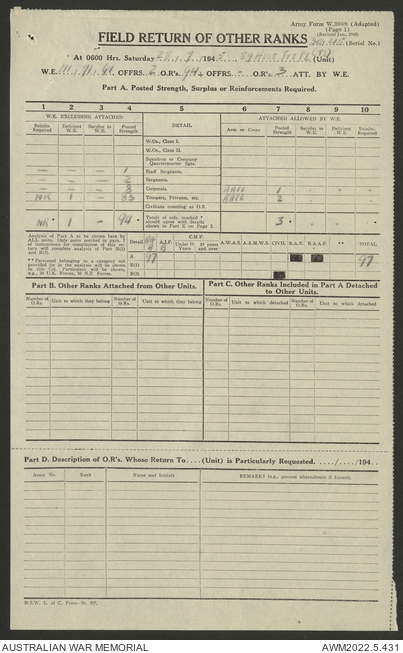 Army Form W.3009 (Adapted)
(Page 1)
FIELD RETURN OF OTHER RANKS
(Serial No.)
At 0600 Hrs. Saturday 28 . 7 . 1945 (Unit)
W.E. OFFRS. O.R's. 94 + OFFRS. - O.R's. 3 ATT. BY W.E.
Part A. Posted Strength, Surplus or Reinforcements Required.
1 2 3 4 5 6 7 8 9 10
W.E. EXCLUDING ATTACHED ATTACHED ALLOWED BY W.E.
Reinfts. Required Deficient W.E. Surplus to W.E. Posted Strength DETAIL Arm or Corps Posted Strength Surplus to W.E. Deficient W.E. Reinfts. Required
W.Os., Class I.
W.Os., Class II.
Squadron or Company Quartermaster Sgts.
— — — 1 Staff Sergeants.
— — — 2 Sergeants.
— — — 8 Corporals. AACC 1
NR 1 — 83 Troopers, Privates, etc. AACC 2
Civilians counting as O.R.
NR 1 — 94 Totals of cols. marked * should agree with details shown in Part E on Page 2. 3
Analysis of Part A to be shown here by ALL units. Only units posted in part. 7 of instructions for compilation of this return will complete analysis of Part B(1) and B(2).
** Personnel belonging to a category not provided for in the analysis will be shown in this Col. Particulars will be shown, e.g., 10 U.K. Forces, 10 N.Z. Forces.
Detail A.I.F. C.M.F. Under 19 Years 19 years and over A.W.A.S. A.A.M.W.S. CIVIL R.A.N. R.A.A.F. ** TOTAL
A 97 97
B(1)
B(2)
Part B. Other Ranks Attached from Other Units.
Part C. Other Ranks Included in Part A Detached to Other Units.
Number of O.Rs. Unit to which they belong Number of O.Rs. Unit to which they belong Number of O.Rs. Unit to which detached Number of O.Rs. Unit to which detached
Part D. Description of O.R's. Whose Return To.... (Unit) is Particularly Requested. ..../..../194..
Army No. Rank Name and Initials REMARKS (e.g., present whereabouts if known).
N.S.W. L. of C. Press
AUSTRALIAN WAR MEMORIAL AWM2022.5.431